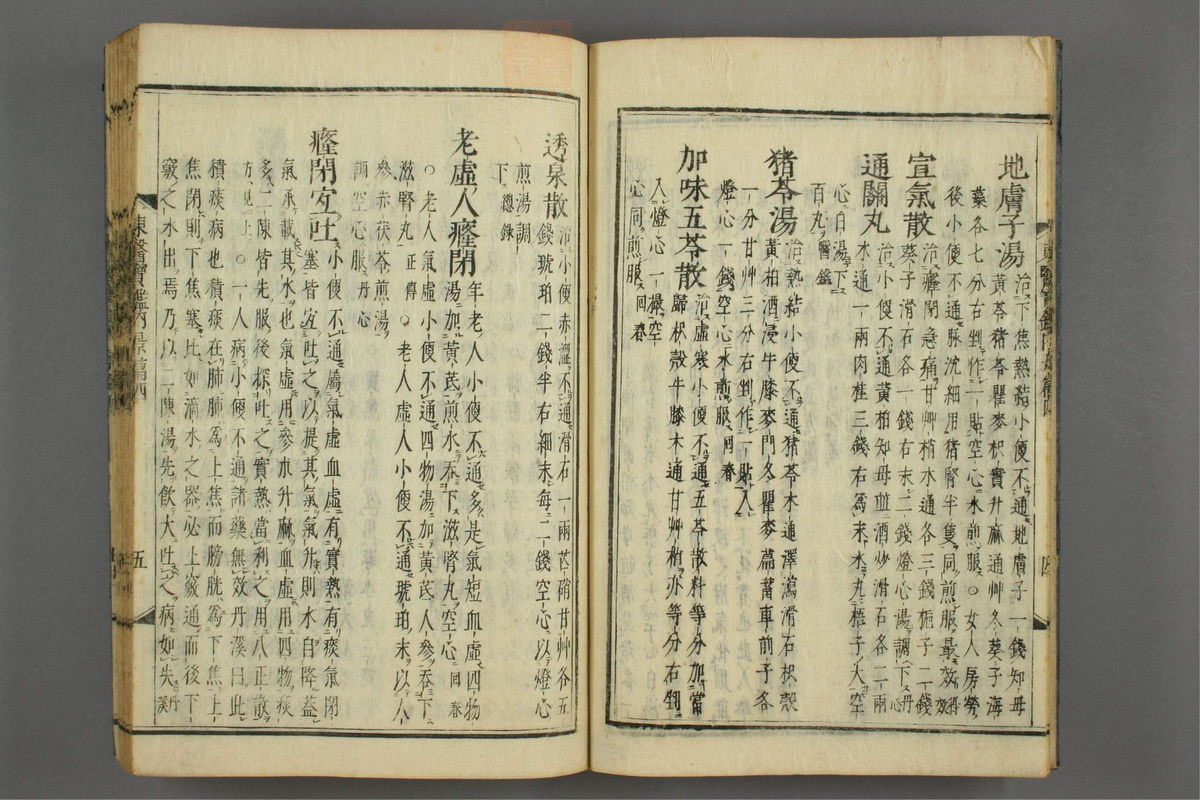 地膚子湯 治下焦熱結小便不通地膚子一錢知母
黃芩猪苓瞿麥枳實升麻通艸冬葵子海
藻各七分右剉作一貼空心水煎服○女人房勞
後小便不通脉沈細用猪腎半隻同煎服最效得效
宣氣散 治癃閉急痛甘艸梢木通各三錢梔子二錢
葵子滑石各一錢右末二錢燈心湯調下丹心
通關丸 治小便不通黃柏知母並酒炒滑石各二兩
木通一兩肉桂三錢右爲末水丸梧子大空
心白湯下
百丸醫鑑
猪苓湯 治熱結小便不通猪苓木通澤瀉滑石枳殼
黃柏酒浸牛膝麥門冬瞿麥萹蓄車前子各
一分甘艸三分右剉作一貼入
燈心一錢空心水煎服回春
加味五苓散 治虛寒小便不通五苓散料等分加當
歸枳殼牛膝木通甘艸梢亦等分右剉
入燈心一撮空
心同煎服回春
透泉散 治小便赤澁不通滑石一兩芒硝甘艸各五
錢琥珀二錢半右細末每二錢空心以燈心
煎湯調
下穩錄
老虛人癃閉 年老人小便不通多是氣短血虛四物
湯加黃芪煎水吞下滋腎丸空心回春
○老人氣虛小便不通四物湯加黃芪人參吞下
滋腎丸正傳○老人虛人小便不通琥珀末以人
參赤茯苓煎湯
調空心服丹心
癃閉宜吐 小便不通屬氣虛血虛有實熱有痰氣閉
塞皆宜吐之以提其氣氣升則水自降蓋
氣承載其水也氣虛用參朮升麻血虛用四物痰
多二陳皆先服後探吐之實熱當利之用八正散
方見上○一人病小便不通諸藥無效丹溪曰此
積痰病也積痰在肺肺爲上焦而膀胱爲下焦上
焦閉則下焦塞比如滴水之器必上竅通而後下
竅之水出焉乃以二陳湯先飮大吐之病如失丹溪
東醫寶鑑內景篇四
五